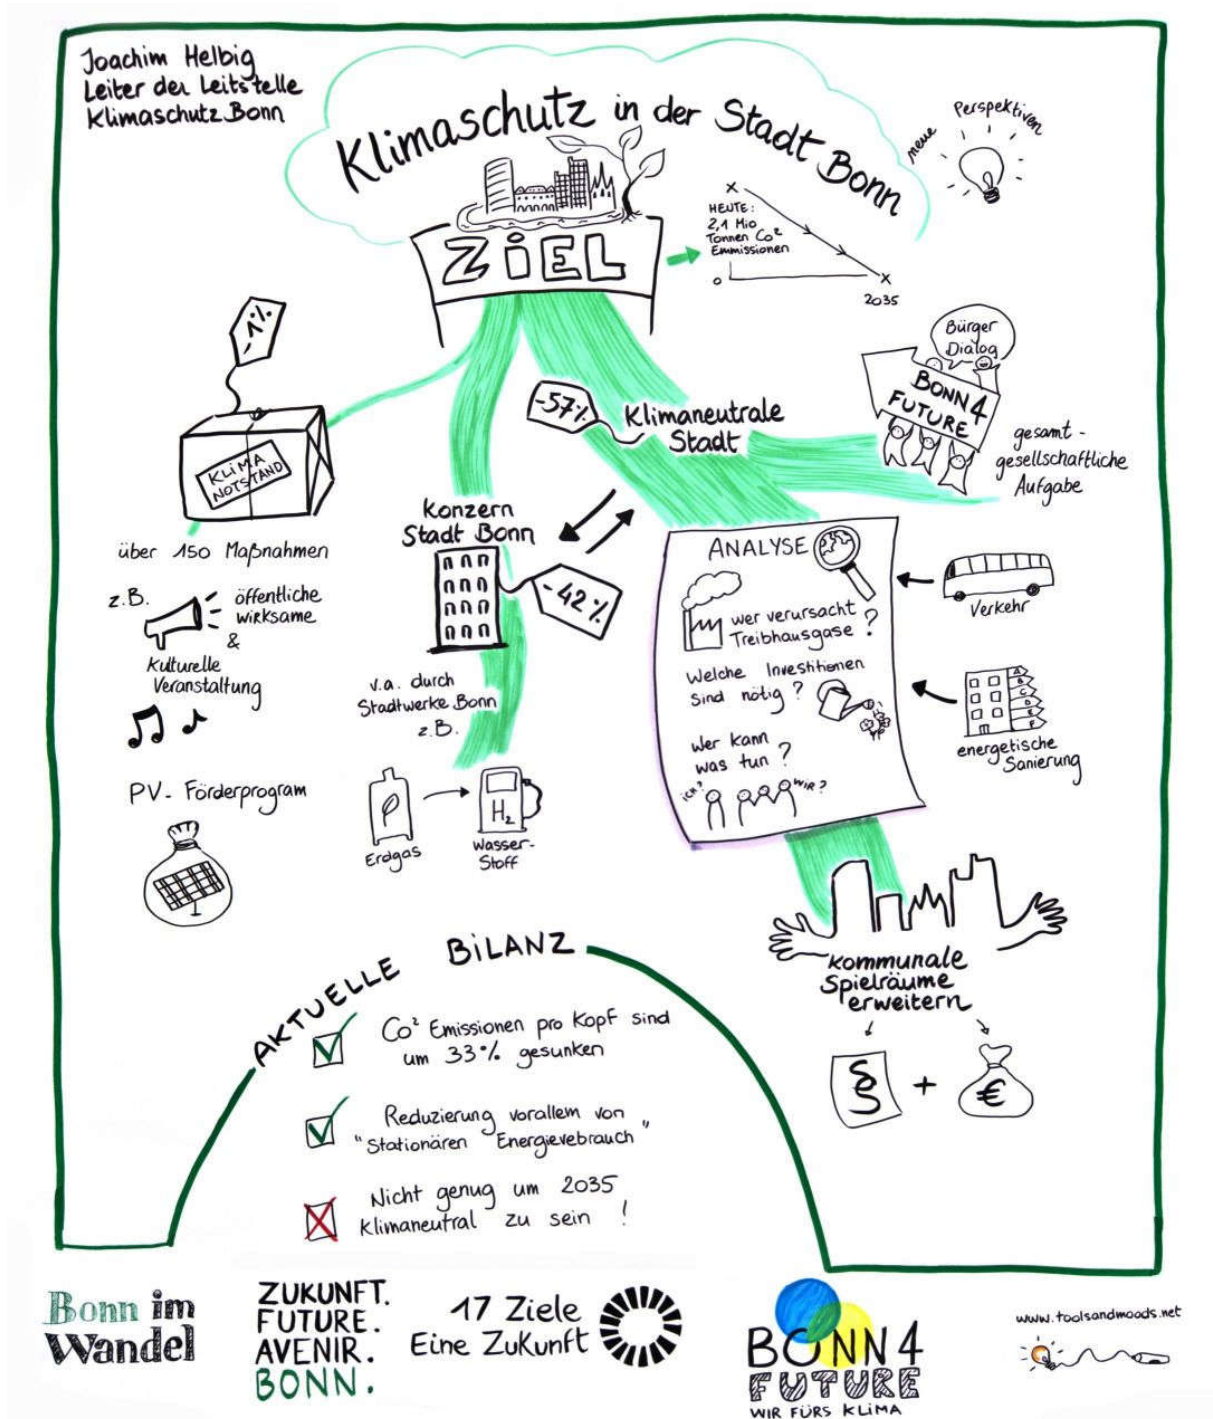 Joachim Helbig
Leiter der Leitstelle
Klimaschutz Bonn
Klimaschutz in der Stadt Bonn
neue Perspektiven
ZIEL
HEUTE:
2,1 Mio
Tonnen Co²
Emmissionen
0
2035
-1%
KLIMA
NOTSTAND
über 150 Maßnahmen
z.B.
öffentliche
wirksame
&
Kulturelle
Veranstaltung
PV-Förderprogram
Konzern
Stadt Bonn
-42%
v.a. durch
Stadtwerke Bonn
z.B.
Erdgas
H₂
Wasser-
Stoff
-57%
Klimaneutrale
Stadt
Bürger
Dialog
BONN 4
FUTURE
gesamt-
gesellschaftliche
Aufgabe
ANALYSE
wer verursacht
Treibhausgase?
Welche Investitionen
sind nötig?
Wer kann
was tun?
ICH?
WIR?
Verkehr
A
B
C
D
E
F
energetische
Sanierung
kommunale
Spielräume
erweitern
§ + €
AKTUELLE BILANZ
Co² Emissionen pro Kopf sind
um 33% gesunken
Reduzierung vorallem von
"Stationären Energievebrauch"
Nicht genug um 2035
klimaneutral zu sein!
Bonn im
Wandel
ZUKUNFT.
FUTURE.
AVENIR.
BONN.
17 Ziele
Eine Zukunft
BONN 4
FUTURE
WIR FÜRS KLIMA
www.toolsandmoods.net